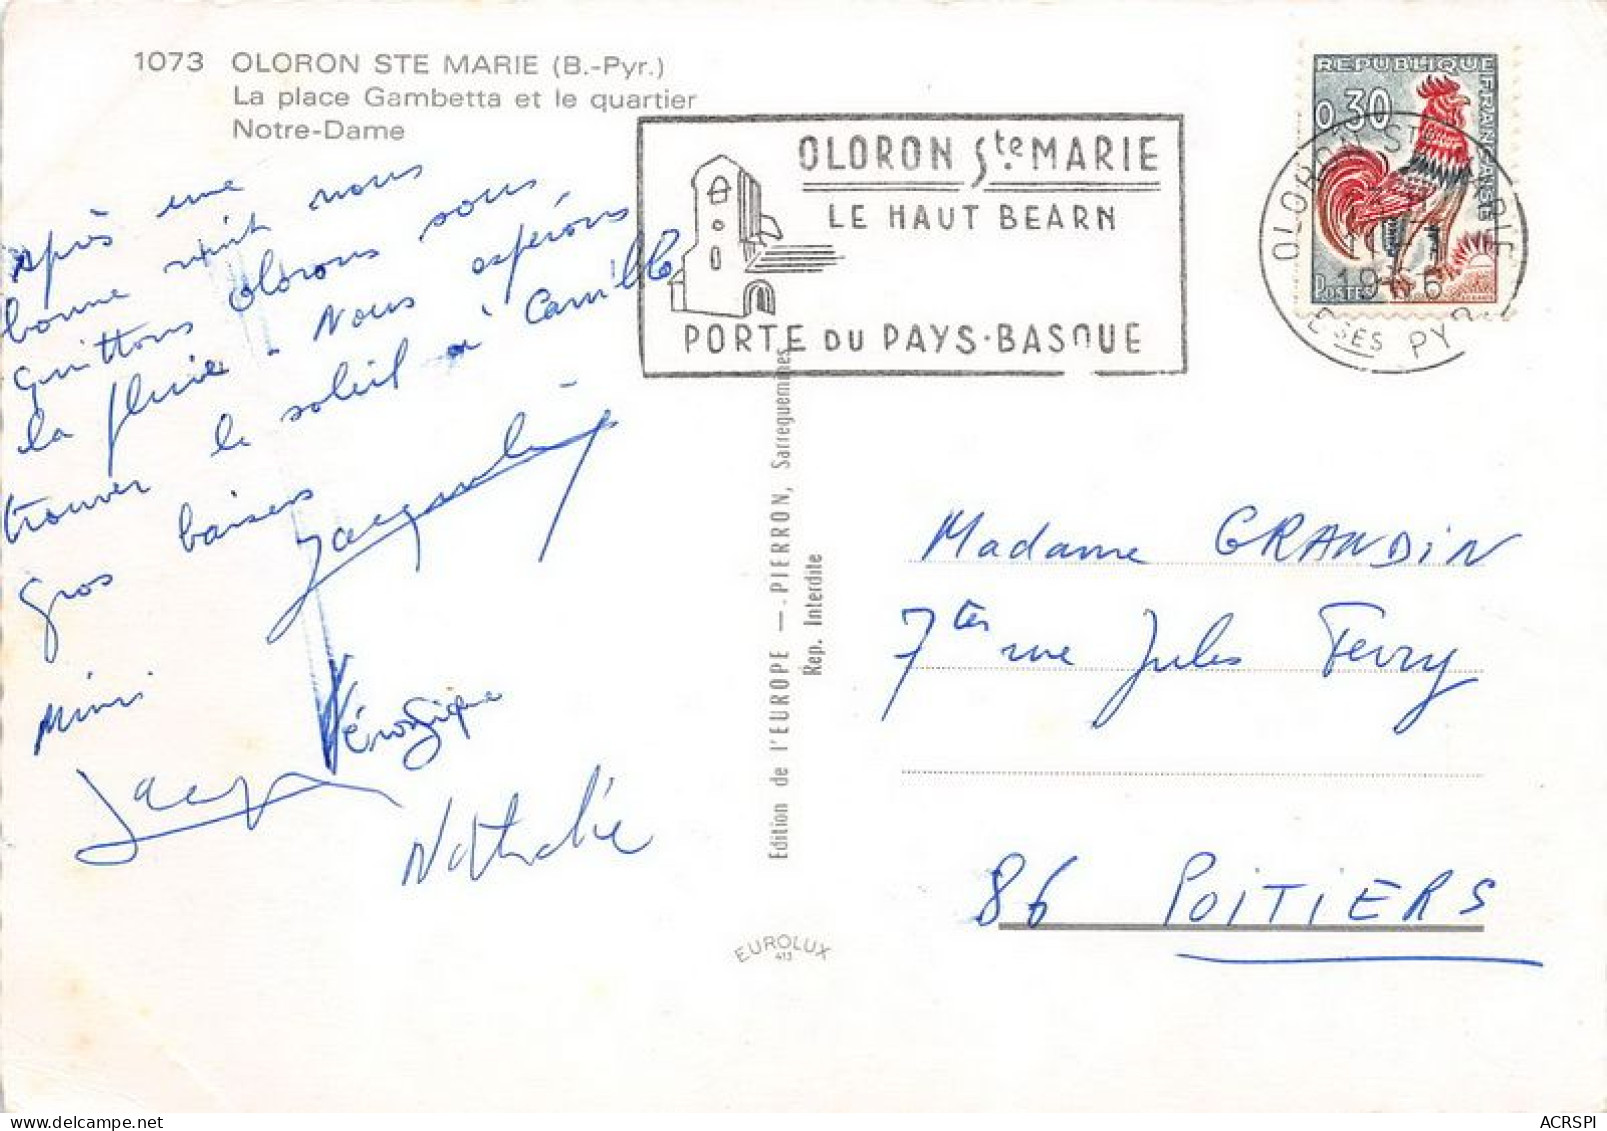 1073 OLORON STE MARIE (B.-Pyr.)
La place Gambetta et le quartier
Notre-Dame
Après une
bonne nuit nous
quittons Olorons sous
la pluie. Nous espérons
trouver le soleil à Camille
gros baisers Jacqueline
Mimi
Véronique
Jacques
Nathalie
OLORON Ste MARIE
LE HAUT BEARN
PORTE DU PAYS-BASQUE
REPUBLIQUE FRANÇAISE
0,30
POSTES
OLORON STE MARIE
1966
BSES PYR
Edition de l'EUROPE — PIERRON, Sarreguemines
Rep. Interdite
Madame GRANDIN
7ter rue Jules Ferry
86 POITIERS
EUROLUX
413
ACRSPI